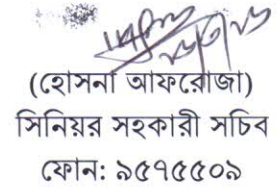 (হোসনা আফরোজা)
সিনিয়র সহকারী সচিব
ফোন: ৯৫৭৫৫০৯